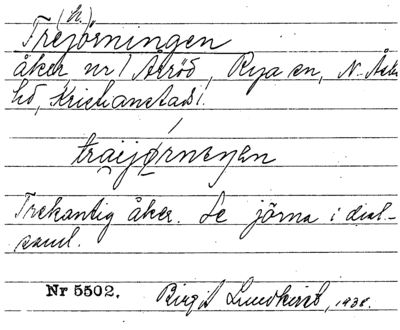 (h.)
Trejörningen
åker nr 1 Årröd, Rya sn, N. Åsbo
hd, Kristianstads l.
traijǿrneŋen
Trekantig åker. Se jörna i dial-
saml.
Nr 5502. Birgit Lundkvist, 1938.